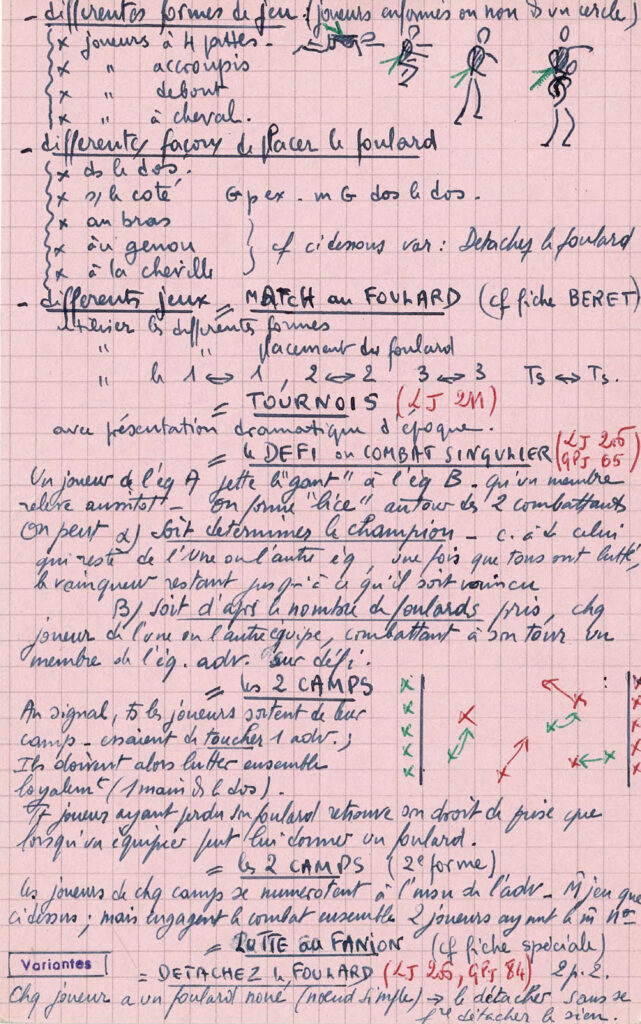 - differentes formes de jeu : (joueurs enfermés ou non ds un cercle)
x joueurs à 4 pattes.
x " accroupis
x " debout
x " à cheval.
- differentes façons de placer le foulard
x ds le dos.
x s/ le coté G p ex. m G dos le dos.
x au bras
x au genou } cf ci dessous var : Detachez le foulard
x à la cheville
- differents jeux = MATCH au FOULARD (cf fiche BERET)
utiliser les differentes formes
" " placement du foulard
" le 1 ↔ 1 , 2 ↔ 2 3 ↔ 3 Ts ↔ Ts.
= TOURNOIS (LJ 211)
avec présentation dramatique d'époque.
= le DEFI ou COMBAT SINGULIER (LJ 205
GPJ 65)
Un joueur de l'éq A jette le "gant" à l'éq B. qu'un membre
relève aussitôt - On forme "lice" autour des 2 combattants
On peut α) soit determiner le champion - c. à d. celui
qui reste de l'une ou l'autre éq, une fois que tous ont lutté,
le vainqueur restant jusqu'à ce qu'il soit vaincu
B) soit d'après le nombre de foulards pris, chq
joueur de l'une ou l'autre équipe, combattant à son tour un
membre de l'éq. adv. sur défi.
= les 2 CAMPS
Au signal, ts les joueurs sortent de leur
camp - essaient de toucher 1 adv. ;
Ils doivent alors lutter ensemble
loyalemt (1 main ds le dos).
Tt joueur ayant perdu son foulard retrouve son droit de prise que
lorsqu'un équipier peut lui donner un foulard.
= les 2 CAMPS (2e forme)
Les joueurs de chq camps se numerotent à l'insu de l'adv - M̂ jeu que
ci dessus ; mais engagent le combat ensemble 2 joueurs ayant le m̂ nom
= LUTTE au FANION (cf fiche spéciale)
Variantes
= DETACHEZ le FOULARD (LJ 205, GPJ 84) 2 p. 2.
Chq joueur a un foulard noué (noeud simple) → le détacher sans se
fre détacher le sien.